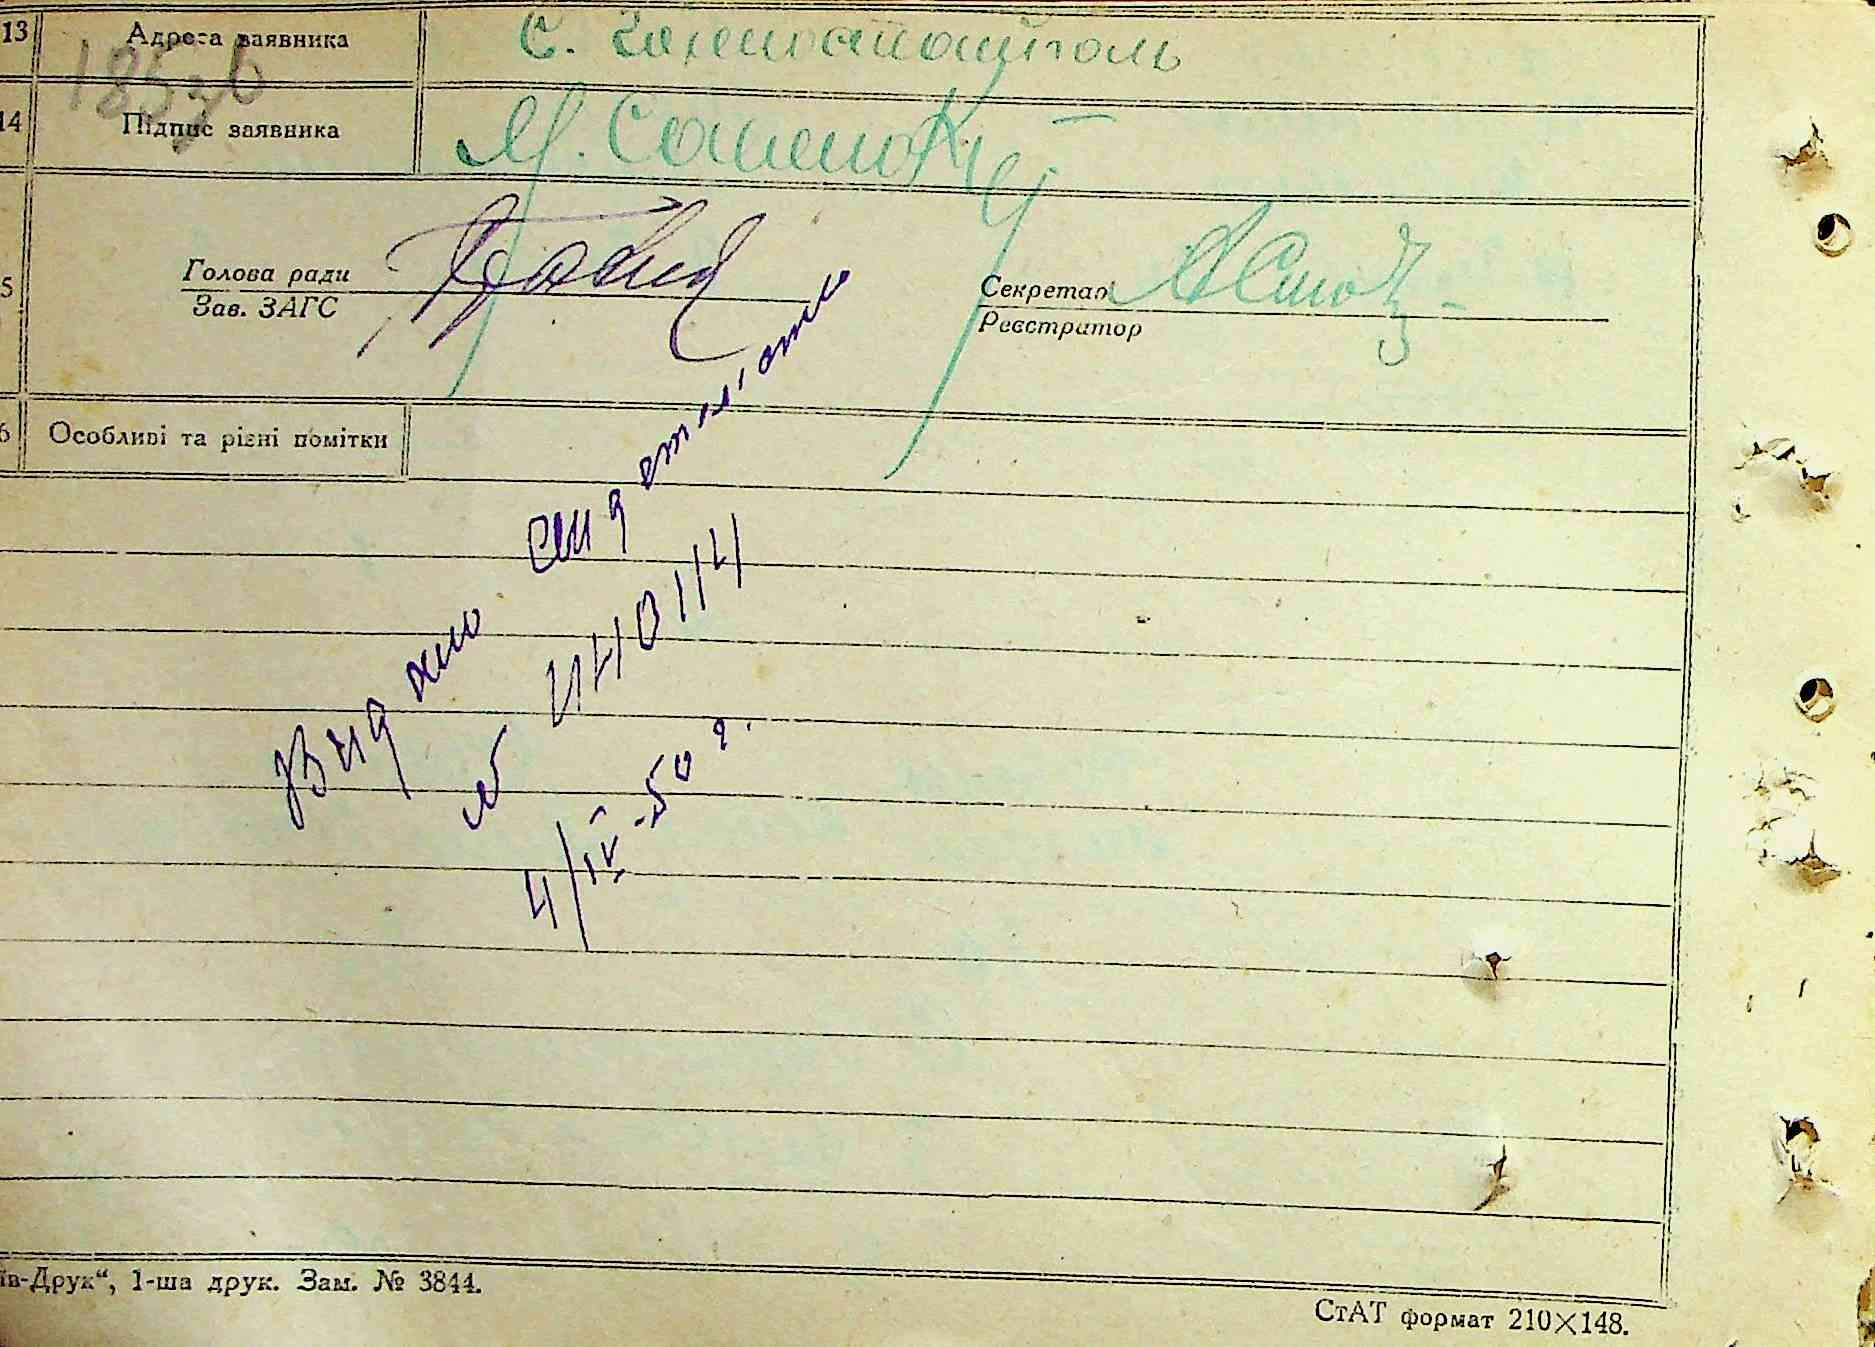 13 Адреса заявника с. Гохенштапполь
185зв
14 Підпис заявника М.
Голова ради
Зав. ЗАГС
Секретар
Реєстратор
Особливі та різні помітки
Видано свідетельство
№ 440114
4/IV-50 г.
їв-Друк“, 1-ша друк. Зам. № 3844.
СтАТ формат 210×148.